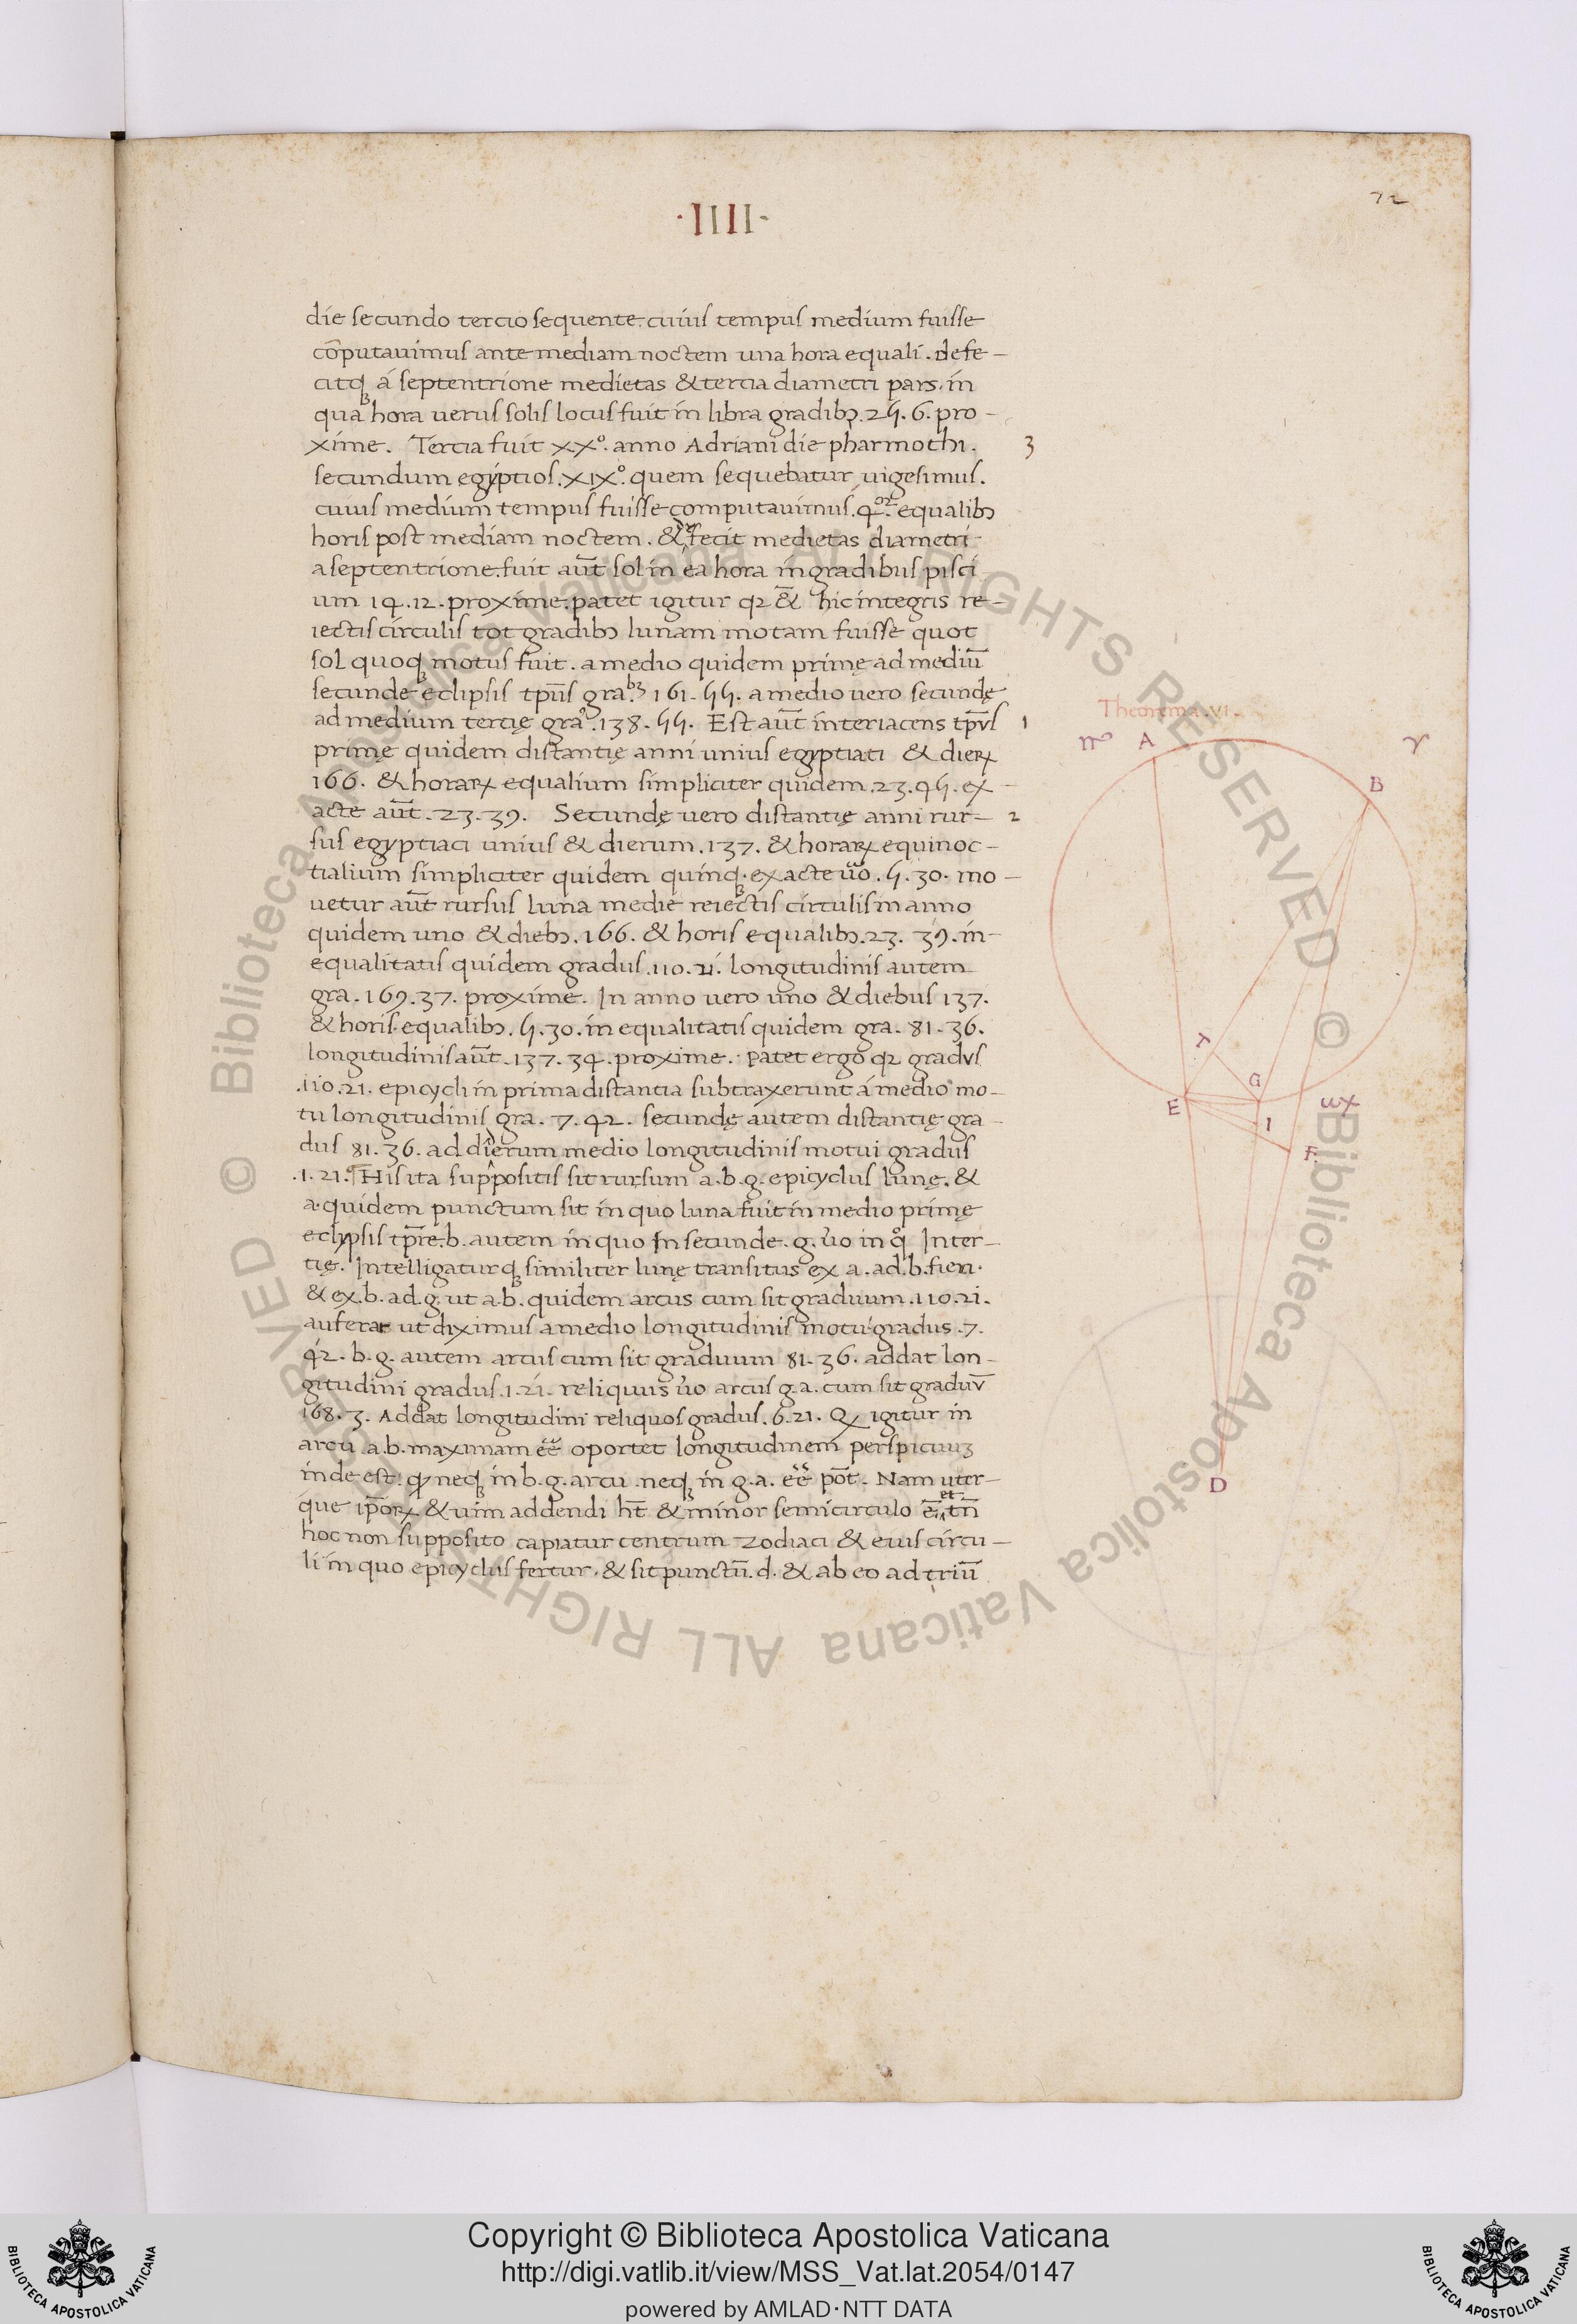 ·IIII·
72
die secundo tercio sequente. cuius tempus medium fuisse
cōputauimus ante mediam noctem una hora equali. defe-
citqꝫ á septentrione medietas & tercia diametri pars. in
qua hora uerus solis locus fuit in libra gradibꝫ. 25. 6. pro-
xime. Tercia fuit xxº. anno Adriani die pharmothi.
3
secundum egyptios. xixº. quem sequebatur uigesimus.
cuius medium tempus fuisse computauimus. 4or. equalibꝫ
horis post mediam noctem. & defecit medietas diametri
a septentrione. fuit aūt sol in ea hora in gradibus pisci
um 14. 12. proxime. patet igitur qꝛ & hic integris re-
iectis circulis tot gradibꝫ lunam motam fuisse quot
sol quoqꝫ motus fuit. a medio quidem primę ad mediū
secunde eclipsis tp̄is gra.bꝫ 161. 55. a medio uero secundę
ad medium tercię gra. 138. 55. Est aūt interiacens tp̄vs
1
primę quidem distantię anni unius egyptiati & dieꝝ
166. & horaꝝ equalium simpliciter quidem. 23. 45. ex
acte aūt. 23. 39. Secundę uero distantię anni rur-
2
sus egyptiaci unius & dierum. 137. & horaꝝ equinoc-
tialium simpliciter quidem quinqꝫ. exacte ūo. 5. 30. mo-
uetur aūt rursus luna medie reiectis circulis in anno
quidem uno & diebꝫ. 166. & horis equalibꝫ. 23. 39. in-
equalitatis quidem gradus. 110. 21. longitudinis autem
gra. 169. 37. proxime. In anno uero uno & diebus 137.
& horis equalibꝫ. 5. 30. inequalitatis quidem gra. 81. 36.
longitudinis aūt. 137. 34. proxime. patet ergo qꝛ gradvs
.110. 21. epicycli in prima distantia subtraxerunt á medio mo-
tu longitudinis gra. 7. 42. secundę autem distantię gra-
dus 81. 36. addiderum medio longitudinis motui gradus
.1. 21. His ita suppositis sit rursum a. b. g. epicyclus lunę. &
a. quidem punctum sit in quo luna fuit in medio primę
eclypsis tp̄re. b. autem in quo In secunde. g. ūo in qº Inter-
tię. Intelligaturqꝫ similiter lunę transitus ex a. ad. b. fieri.
& ex. b. ad. g. ut a. b. quidem arcus cum sit graduum. 110. 21.
auferat ut diximus a medio longitudinis motu gradus. 7.
42. b. g. autem arcus cum sit graduum 81. 36. addat lon-
gitudini gradus. 1. 21. reliquus ūo arcus g. a. cum sit graduū
168. 3. Addat longitudini reliquos gradus. 6. 21. Qꝫ igitur in
arcu a. b. maximam eē oportet longitudinem perspicuuꝫ
inde est. qꝫ neqꝫ in b. g. arcu neqꝫ in g. a. eē pōt. Nam uter-
que ip̄oꝝ & uim addendi ht̄ & minor semicirculo ē. et tn̄
hoc non supposito capiatur centrum zodiaci & eius circu-
li in quo epicyclus fertur. & sit punctū. d. & ab eo ad triū
Theorema. VI.
♍ A
♈
B
T
G
E
I
F
D
Copyright © Biblioteca Apostolica Vaticana
http://digi.vatlib.it/view/MSS_Vat.lat.2054/0147
powered by AMLAD·NTT DATA
BIBLIOTECA APOSTOLICA VATICANA
BIBLIOTECA APOSTOLICA VATICANA
© Biblioteca Apostolica Vaticana ALL RIGHTS RESERVED
© Biblioteca Apostolica Vaticana ALL RIGHTS RESERVED